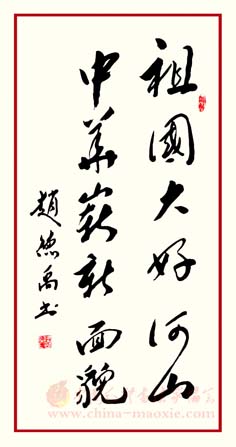 祖國大好河山
中華嶄新面貌
趙德禹书
www.china-maoxie.com